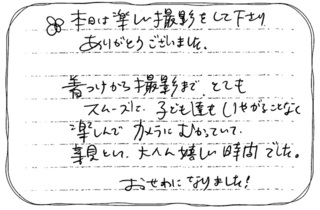 本日は楽しい撮影をして下さり
ありがとうございました。
着つけから撮影まで、とても
スムーズに、子ども達もいやがることなく
楽しんでカメラにむかっていて、
親として、大へん嬉しい時間でした。
おせわになりました!